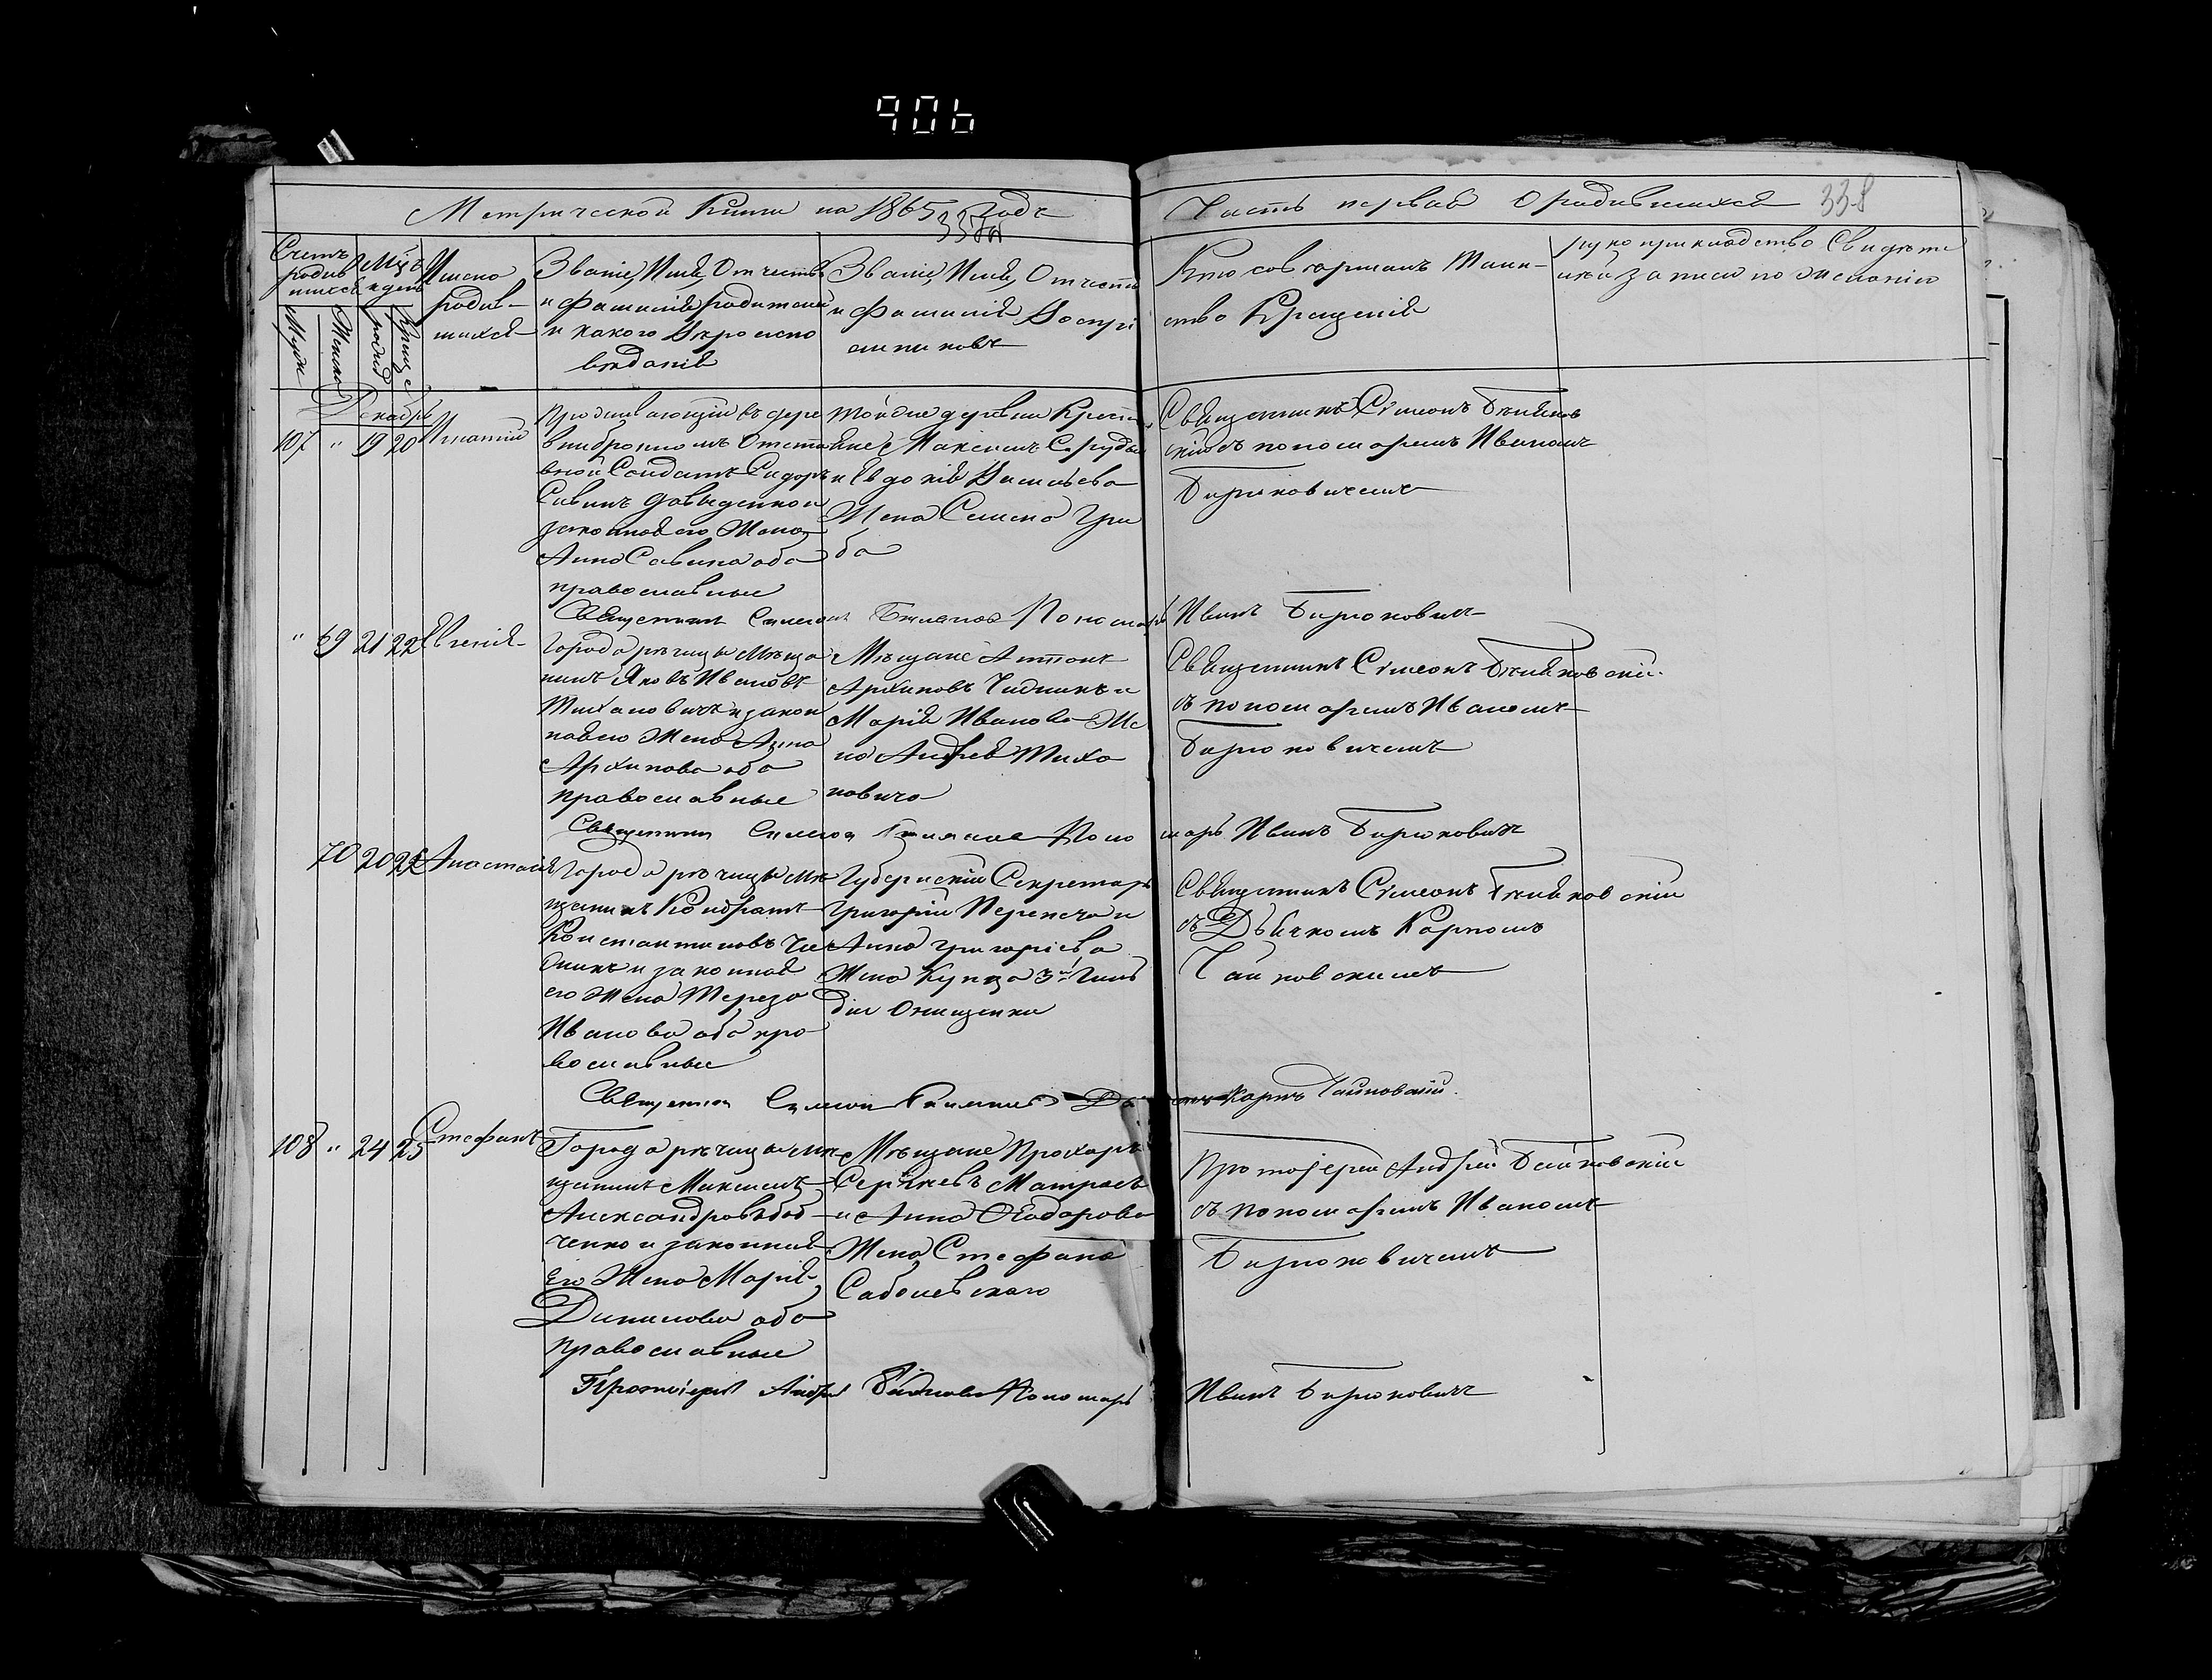 906
Метрической Книги на 1865 Годъ
Часть первая О родившихся 338
Счетъ родив шихся
Мужс
Женс
Мѣц. и день
рожд
Креще
Имена родив- шихся
Званіе, Имя, Отчество
и Фамилія родителей
и какого Вѣроиспо
вѣданія
Званіе, Имя, Отчество
и Фамилія Воспрі
емниковъ
Кто совершалъ Таин-
ство Крещенія
рукоприкладство Свидѣте
лей записи по желанію
Декабрь
107 " 19 20 Игнатій
Проживающій въ дере
Отста
вной Солдатъ Сидоръ
Савинъ Давыденко и
законная его Жена
Анна Савина оба
православные
той же деревни Крестья
не Максимъ
и Евдокія Васильева
Жена Семена Гри
ба
Священникъ Сѵмеонъ
съ пономаремъ Иваномъ
Бирюковичемъ
Священникъ Симеонъ Пономарь Иванъ Бирюковичъ
" 69 21 22 Евгенія
Города рѣчицы Мѣща
нинъ Яковъ Ивановъ
Михановичъ и закон
ная его Жена Анна
Архипова оба
православные
Мѣщане Антонъ
Архиповъ Чидникъ и
Марія Иванова Же
на Андрея Миха
новича
Священникъ Сѵмеонъ
съ пономаремъ Иваномъ
Бирюковичемъ
Священникъ Симеонъ Пономарь Иванъ Бирюковичъ
70 20 22 Анастасія
Города рѣчицы Мѣ
щанинъ Кондратъ
Константиновъ Чи
дникъ и законная
его Жена Тереза
Иванова оба пра
вославные
Губернскій Секретарь
Григорій Перепеча и
Анна Григоріева
Жена Купца 3й Гиль
діи Онищенки
Священникъ Сѵмеонъ
съ Дьячкомъ Карпомъ
Чайковскимъ
Священникъ Симеонъ Карпъ Чайковскій.
108 " 24 25 Стефанъ
Города рѣчицы Мѣ
щанинъ Максимъ
Александровъ Боб
ченко и законная
Его Жена Марія
Данилова оба
православные
Мѣщане Прохоръ
Сергѣевъ Матрасъ
и Анна Ѳеодорова
Жена Стефана
Саболевскаго
Протоіерей Андрей
съ пономаремъ Иваномъ
Бирюковичемъ
Протоіерей Андрей Пономарь Иванъ Бирюковичъ